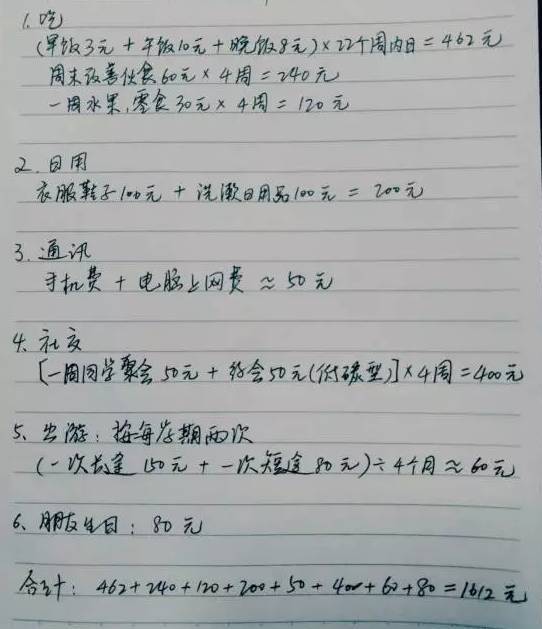 1. 吃
(早饭3元 + 午饭10元 + 晚饭8元) × 22个周内日 = 462元
周末改善伙食60元 × 4周 = 240元
一周水果,零食30元 × 4周 = 120元
2. 日用
衣服鞋子100元 + 洗漱日用品100元 = 200元
3. 通讯
手机费 + 电脑上网费 ≈ 50元
4. 社交
[一周同学聚会50元 + 约会50元(低碳型)] × 4周 = 400元
5、出游: 按每学期两次
(一次长途150元 + 一次短途80元) ÷ 4个月 ≈ 60元
6、朋友生日: 80元
合计: 462+240+120+200+50+400+60+80=1612元